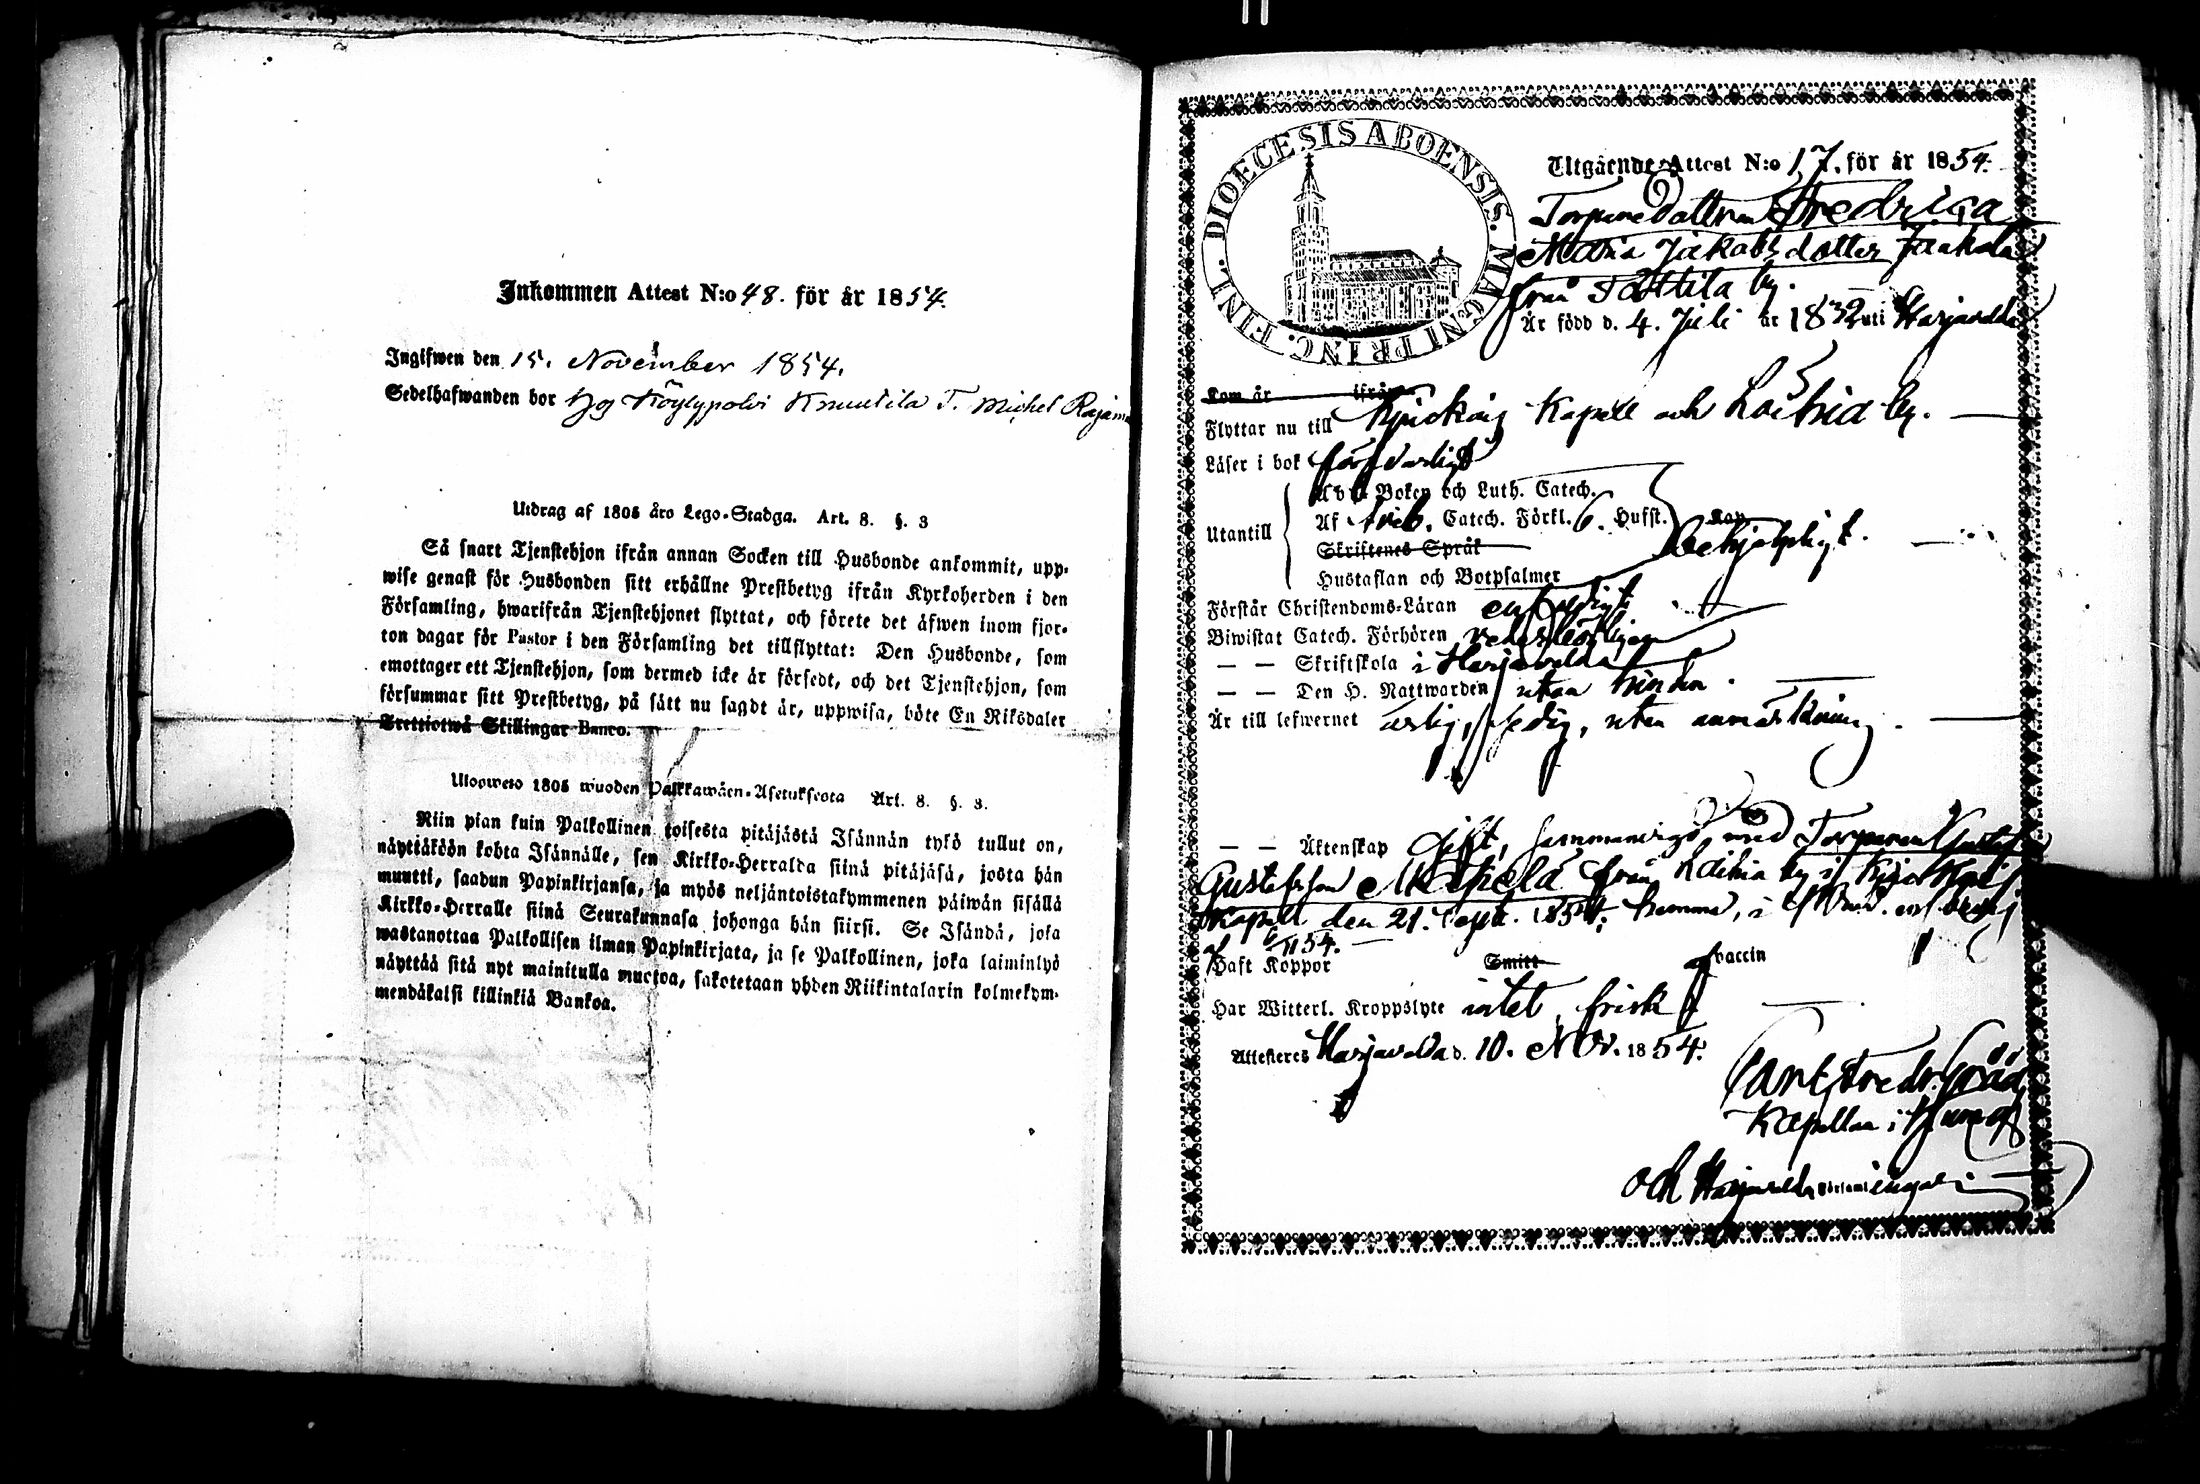 Inkommen Attest N:o 48. för år 1854.
Ingifwen den 15. November 1854.
Sedelhafwanden bor Hos Köylypolvi Knuutila T. Michel
Utdrag af 1805 års Lego-Stadga. Art. 8. §. 3
Så snart Tjenstehjon ifrån annan Socken till Husbonde ankommit, upp-
wise genast för Husbonden sitt erhållne Prestbetyg ifrån Kyrkoherden i den
Församling, hwarifrån Tjenstehjonet flyttat, och förete det äfwen inom fjor-
ton dagar för Pastor i den Församling det tillflyttat: Den Husbonde, som
emottager ett Tjenstehjon, som dermed icke är försedt, och det Tjenstehjon, som
försummar sitt Prestbetyg, på sätt nu sagdt är, uppwisa, böte En Riksdaler
Trettiotwå Skillingar Banco.
Ulosweto 1805 wuoden Palkkawäen-Asetuksesta Art. 8. §. 3.
Niin pian kuin Palkollinen toisesta pitäjästä Isännän tykö tullut on,
näyttäköön kohta Isännälle, sen Kirkko-Herralda siinä pitäjäsä, josta hän
muutti, saadun Papinkirjansa, ja myös neljäntoistakymmenen päiwän sisällä
Kirkko-Herralle siinä Seurakunnasa johonga hän siirsi. Se Isändä, joka
wastanottaa Palkollisen ilman Papinkirjata, ja se Palkollinen, joka laiminlyö
näyttää sitä nyt mainitulla muotoa, sakotetaan yhden Riikintalarin kolmekym-
mendäkaksi killinkiä Bankoa.
DIOECESIS ABOENSIS. MAGNI PRINC. FINL.
Utgående Attest N:o 17. för år 1854.
Torpare Dottren Fredrica
Maria Jakobsdotter Jaakola
från Tattila by.
Är född d. 4. Juli år 1832 uti Harjavalda
Kom år ifrån
Flyttar nu till Kapell och by.
Läser i bok försvarligt
Abc Boken och Luth. Catech.
Utantill Af Sveb. Catech. Förkl. 6. Hufst. Kap
Skriftenes Språk behjelpligt.
Hustaflan och Botpsalmer
Förstår Christendoms-Läran enfaldigt
Biwistat Catech. Förhören vederbörligen
— — Skriftskola i Harjavalda
— — Den H. Nattwarden utan hinder.
Är till lefwernet ärlig, sedig, utan anmärkning.
— — Äktenskap Gift, sammanvigd med Torparen
Gustafsson från by i
Kapell den 21. Sept. 1854;
af 6/11 54.
Haft Koppor Smitt vaccin
Har Witterl. Kroppslyte intet, frisk
Attesteres Harjavalda d. 10. Nov. 1854.
Carl Fredr.
Kapellan i
och Harjavalda Församlingar